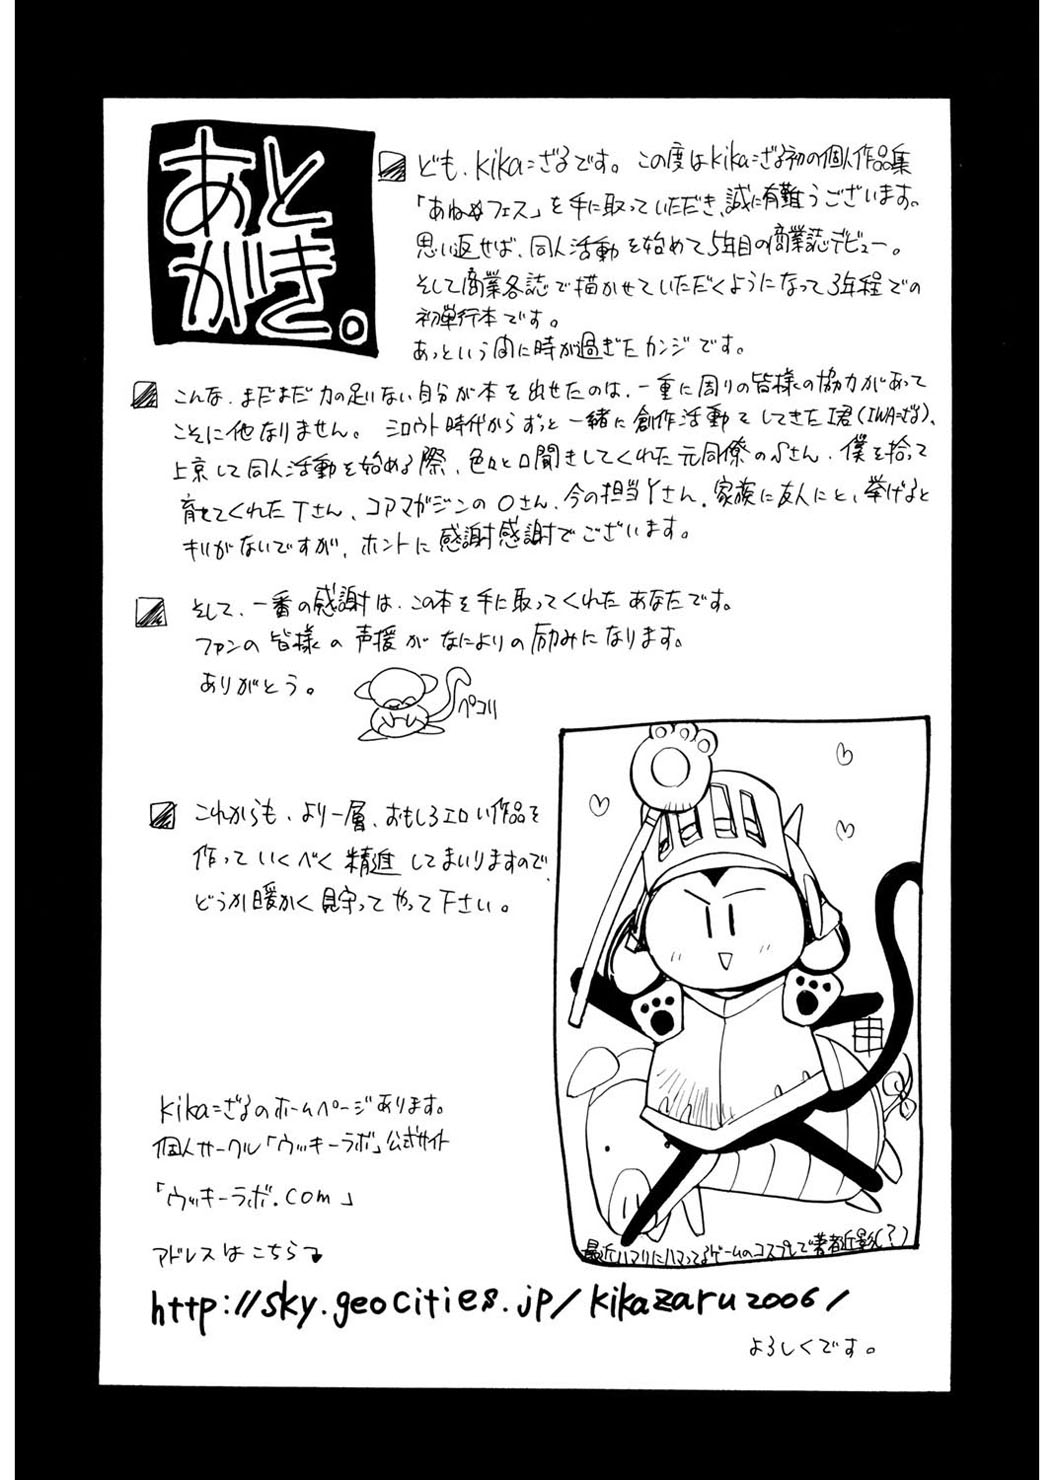 あと
がき。
ども、kika=ざるです。この度はkika=ざる初の個人作品集
「あねぬフェス」を手に取っていただき、誠に有難うございます。
思い返せば、同人活動を始めて5年目の商業誌デビュー。
そして商業各誌で描かせていただくようになって3年程での
初単行本です。
あっという間に時が過ぎたカンジです。
こんな、まだまだ力の足りない自分が本を出せたのは、一重に周りの皆様の協力があって
こそに他なりません。シロウト時代からずっと一緒に創作活動をしてきたI君(IWA=ざる)、
上京して同人活動を始める際、色々と口聞きしてくれた元同僚のSさん、僕を拾って
育ててくれたTさん、コアマガジンのOさん、今の担当Yさん、家族に友人にと、挙げると
キリがないですが、ホントに感謝感謝でございます。
そして、一番の感謝は、この本を手に取ってくれたあなたです。
ファンの皆様の声援がなによりの励みになります。
ありがとう。
ペコリ
これからも、より一層、おもしろエロい作品を
作っていくべく精進してまいりますので、
どうか暖かく見守ってやって下さい。
最近ハマりにハマってるゲームのコスプレで著者近影(?)
kika=ざるのホームページあります。
個人サークル「ウッキーラボ」公式サイト
「ウッキーラボ.com」
アドレスはこちら
http://sky.geocities.jp/kikazaru2006/
よろしくです。